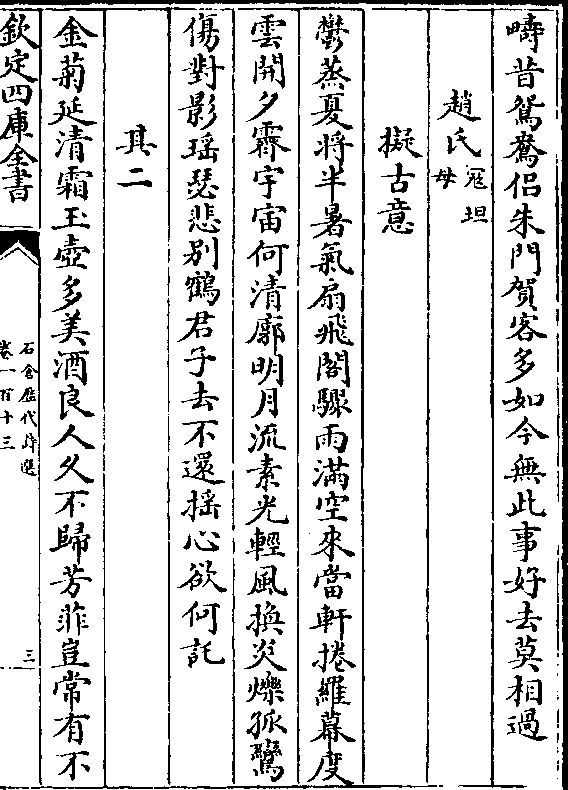 疇昔鴛鴦侣朱門賀客多如今無此事好去莫相過
趙氏寇坦母
擬古意
鬱蒸夏將半暑氣扇飛閣驟雨滿空來當軒捲羅幕度
雲開夕霽宇宙何清廓明月流素光輕風換炎爍孤鸞
傷對影瑶瑟悲别鶴君子去不還揺心欲何託
其二
金菊延清霜玉壺多美酒良人久不歸芳菲豈常有不
欽定四庫全書
石倉歷代詩選
卷一百十三
三